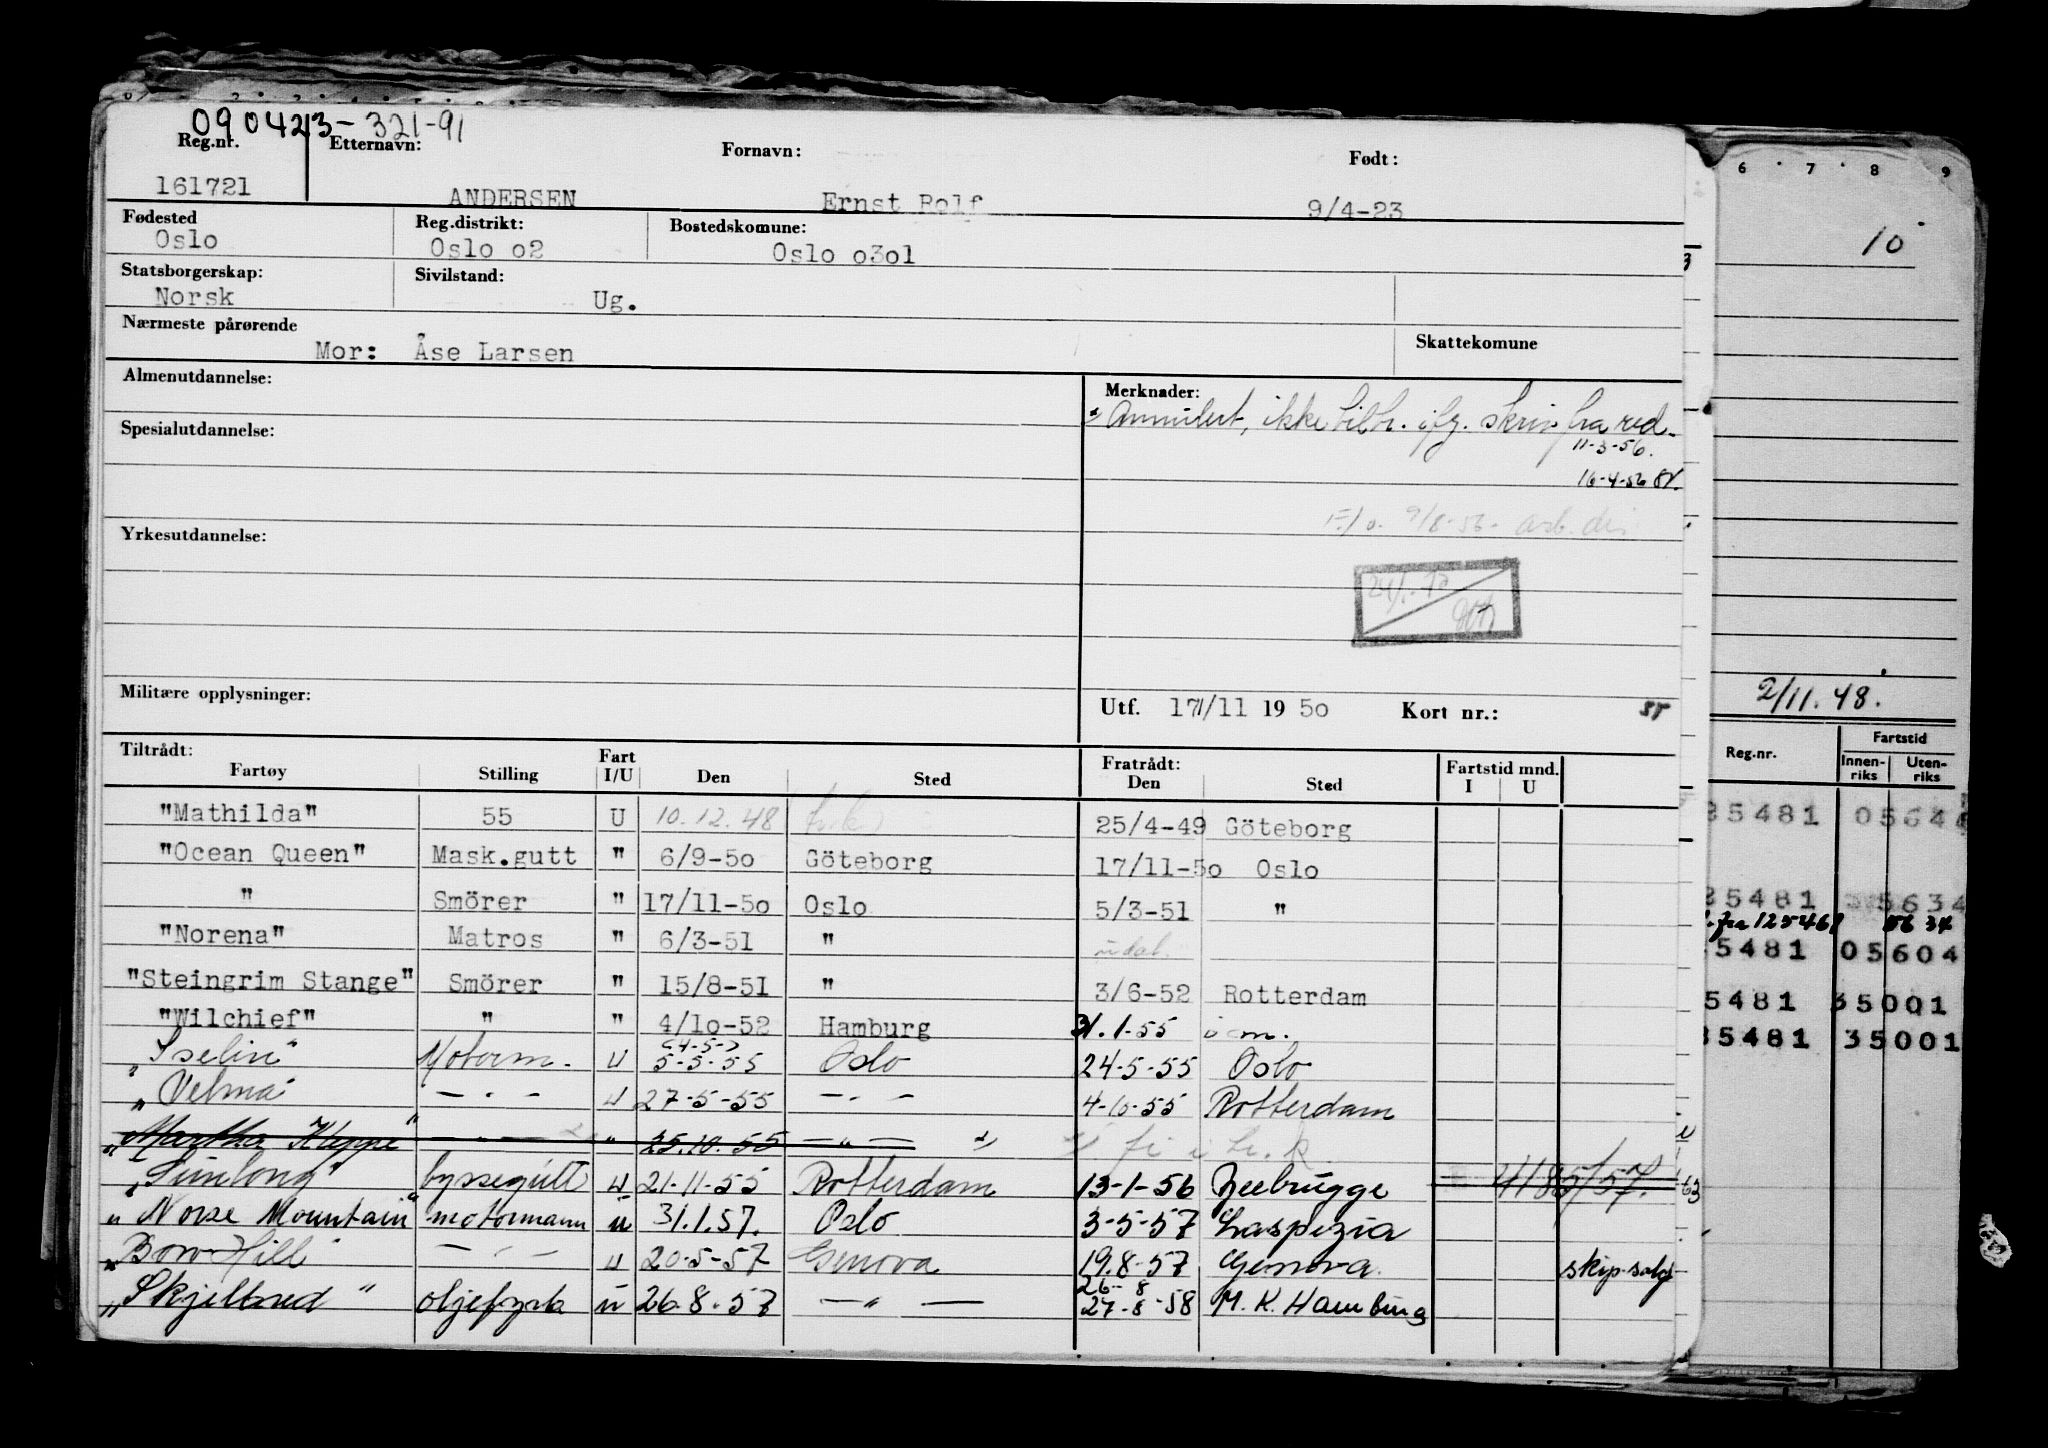 090423-321-91
Reg.nr. Etternavn: Fornavn: Født:
161721 ANDERSEN Ernst Rolf 9/4-23
Fødested Reg.distrikt: Bostedskomune:
Oslo Oslo o2 Oslo o3o1
Statsborgerskap: Sivilstand:
Norsk Ug.
Nærmeste pårørende Skattekomune
Mor: Åse Larsen
Almenutdannelse: Merknader:
Annulert, ikke tiltr. ifg. skriv fra red.
11-3-56.
Spesialutdannelse:
16-4-56
9/8-56-
Yrkesutdannelse:
Militære opplysninger: Utf. 17/11 19 50 Kort nr.:
Tiltrådt: Fart Fratrådt: Fartstid mnd.
Fartøy Stilling I/U Den Sted Den Sted I U
"Mathilda" 55 U 10.12.48 25/4-49 Göteborg
"Ocean Queen" Mask.gutt " 6/9-5o Göteborg 17/11-5o Oslo
" Smörer " 17/11-5o Oslo 5/3-51 "
"Norena" Matros " 6/3-51 "
"Steingrim Stange" Smörer " 15/8-51 " 3/6-52 Rotterdam
"Wilchief" " " 4/1o-52 Hamburg 31.1-55
"Iselin" Motorm. U 5-5-55 Oslo 24-5-55 Oslo
"Velma" — · — U 27-5-55 — · — 4-10-55 Rotterdam
"Martha Kleppe" — " — " 25.10.55 — " —
"Sunlong" byssegutt U 21-11-55 Rotterdam 13-1-56 Zeebrügge
"Norse Mountain" motormann u 31.1.57. Oslo 3-5-57 Laspezia
"Bow Hill" — " — U 20-5-57 Genova 19.8-57 Genova. skip solgt
26- 8
"Skjelbred" oljefyrb u 26.8.57 — " — 27-8-58 M.K. Hamburg
6 7 8 9
10
2/11.48.
Reg.nr. Fartstid
Innen-riks Uten-riks
35481 0564
35481 5634
fra 125461 0634
5481 05604
5481 35001
35481 35001